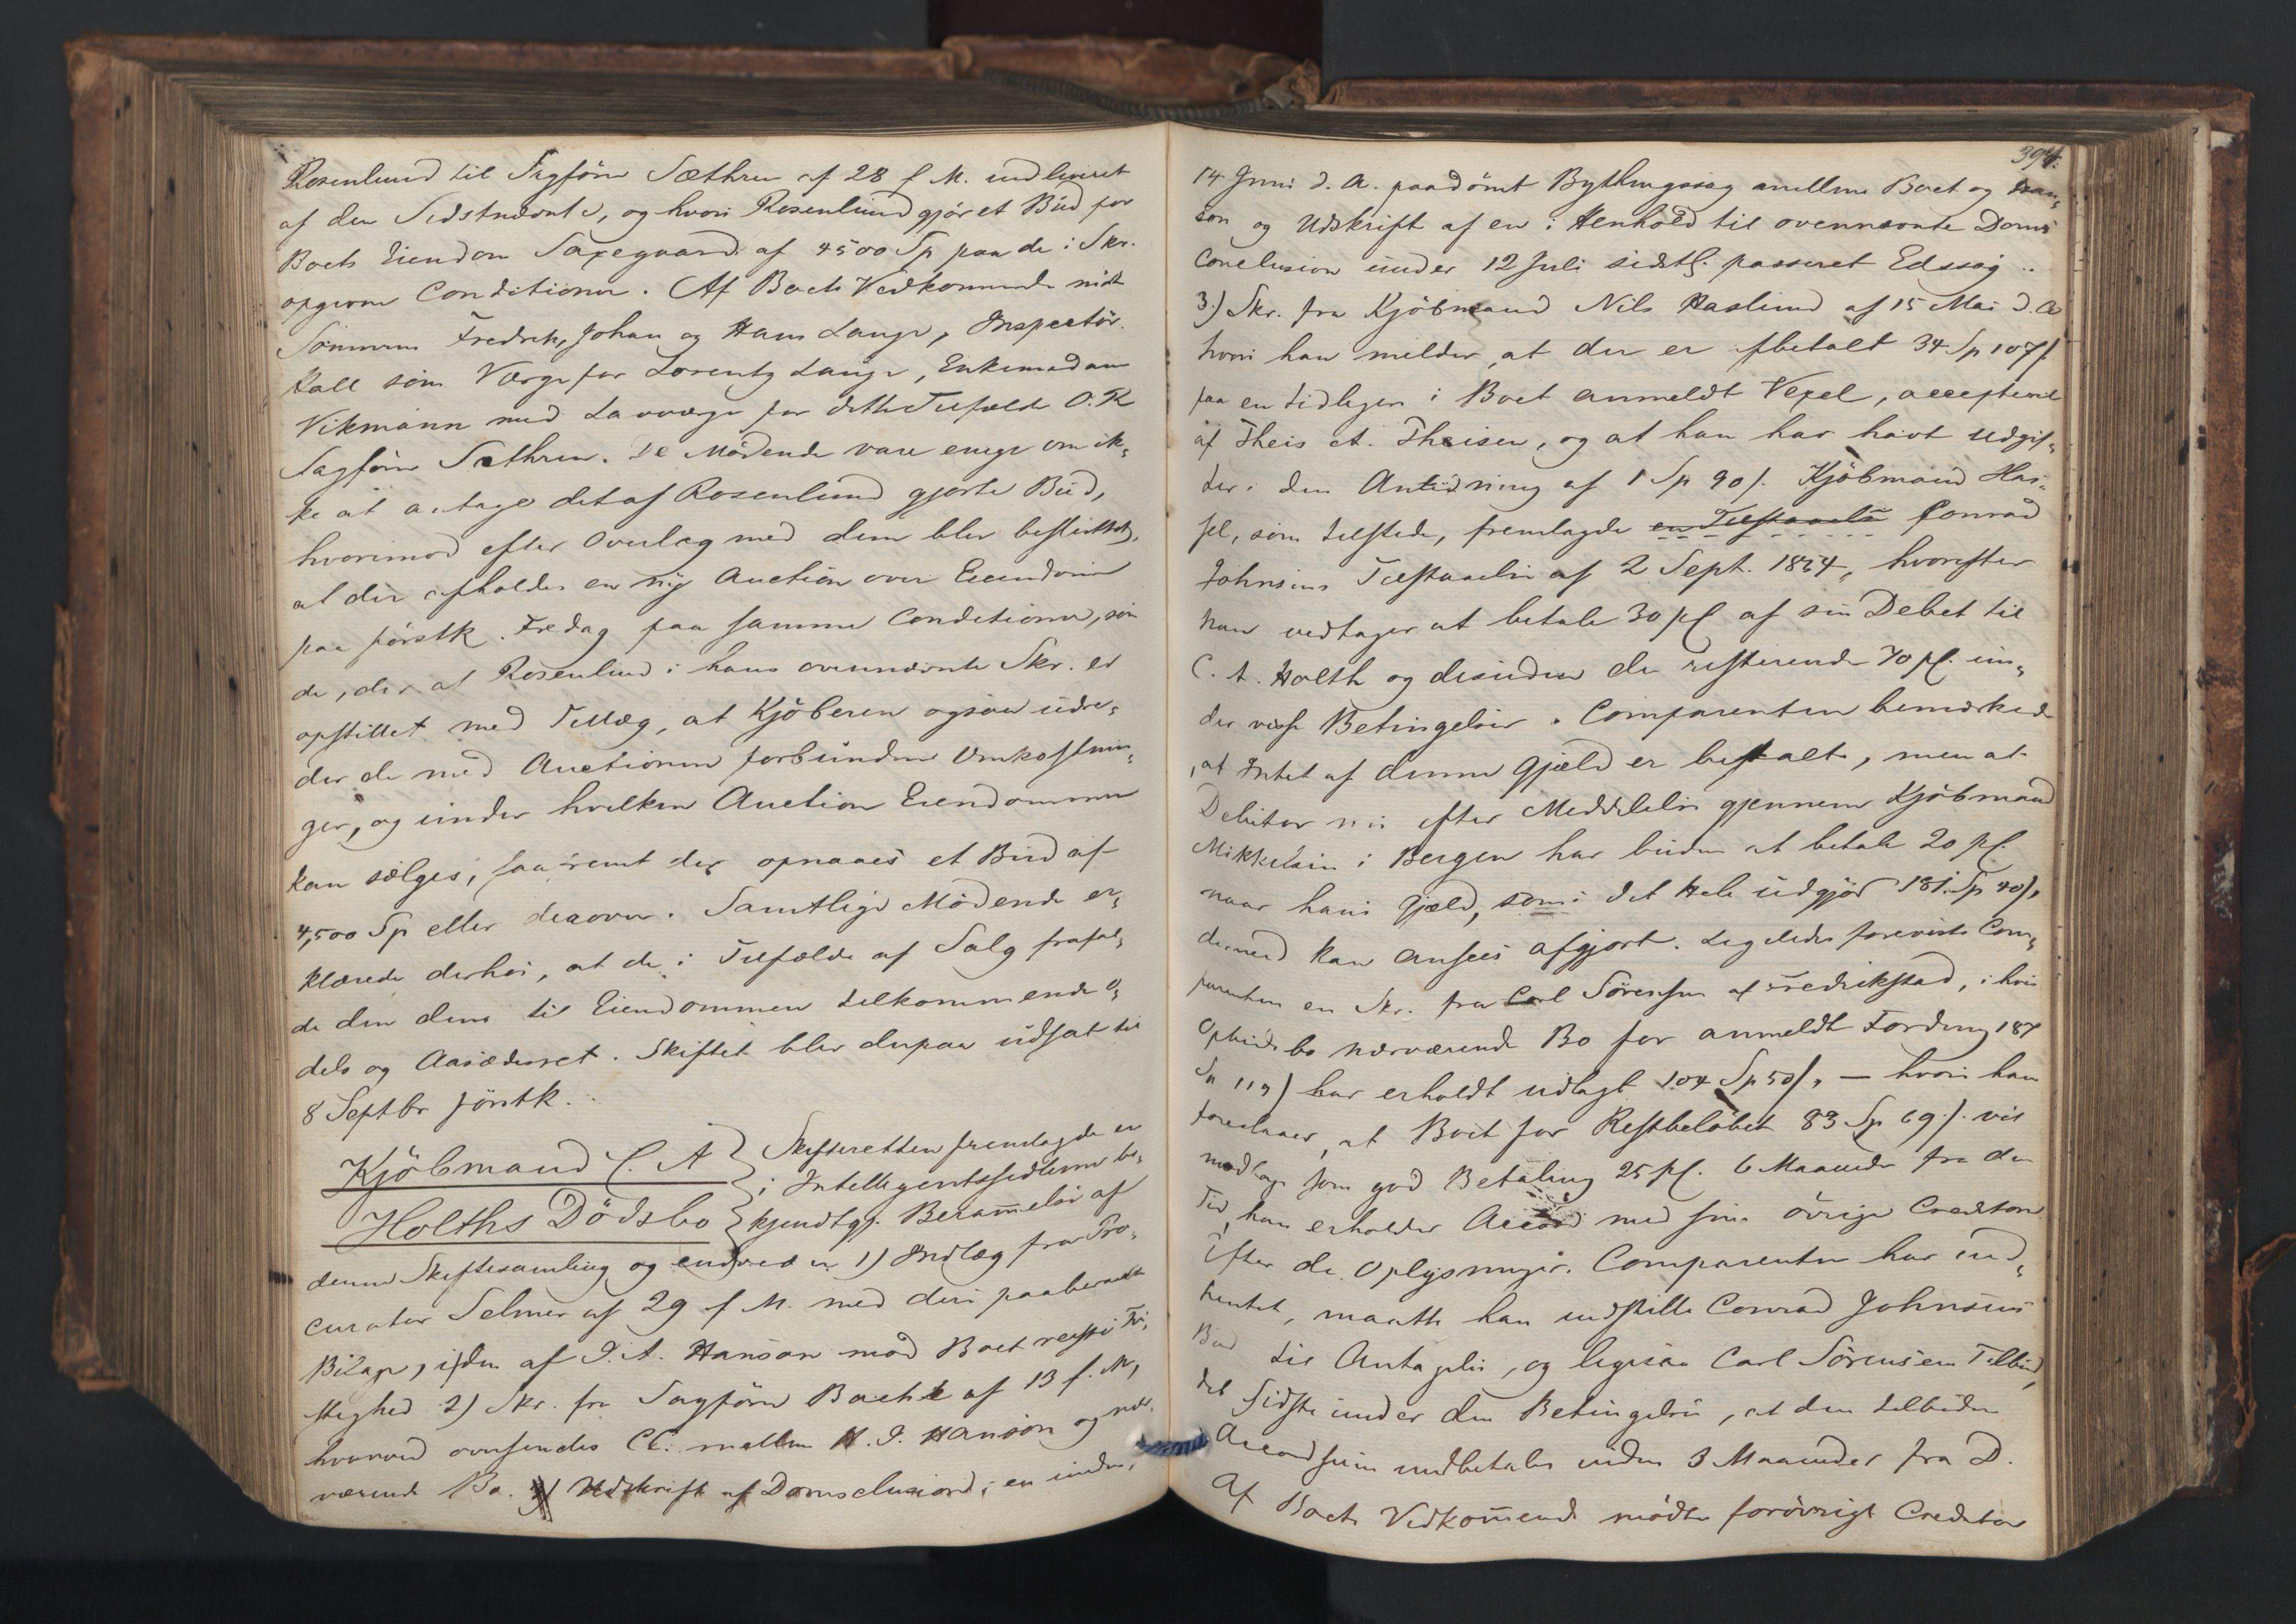 Rosenlund til Sagförer Sæthren af 28 f. M. indleveret
af den Sidstnævnte, og hvori Rosenlund gjör et Bud for
Boets Eiendom Saxegaard af 4500 Sp paa de i Skr.
opgivne Conditioner. Af Boets Vedkommende mödte
Sönnerne Fredrik, Johan og Hans Lange, Inspectör
Kall som Værge for Lorentz Lange, Enkemadam
Vikmann med Lavværge for dette Tilfælde O.R
Sagförer Sæthren. De Mödende vare enige om ik„
ke at antage det af Rosenlund gjorte Bud,
hvorimod efter Overlæg med dem blev besluttet,
at der afholdes en ny Auction over Eiendommen
paa förstk. Fredag paa samme Conditioner, som
de, der af Rosenlund i hans ovennævnte Skr. er
opstillet med Tillæg, at Kjöberen ogsaa udre„
der de med Auctionen forbundne Omkostnin„
ger, og under hvilken Auction Eiendommen
kan sælges, saafremt der opnaaes et Bud af
4,500 Sp eller derover. Samtlige Mödende er„
klærede derhos, at de i Tilfælde af Salg frafal„
de den dem til Eiendommen tilkommende O„
dels og Aasædesret. Skiftet blev derpaa udsat til
8 Septbr förstk.
Kjöbmand C. A
Holths Dödsbo
Skifteretten fremlagde en
i Intelligentssedlerne be„
kjendtgj. Berammelse af
denne Skiftesamling og endvidere 1) Indlæg fra Pro„
curator Selmer af 29 f. M. med deri paaberaabte
Bilage, i af I. A. Hanson mod Boet reiste
2) Skr. fra Sagförer Bache af 13 f. M,
hvorved oversendes Ct. mellem H. I. Hanson og nær„
værende Bo. Udskrift af i en under„
394.
14 Juni d. A. paadömt Bythingssag mellem Boet og Han„
son og Udskrift af en i Henhold til ovennævnte Doms
Conclusion under 12 Juli sidstl. passeret Edssag..
3) Skr. fra Kjöbmand Nils Haslund af 15 Mai d. A
hvori han melder, at der er afbetalt 34 Sp 107 s.
paa en tidligere i Boet anmeldt Vexel, accepteret
af Theis A. Theisen, og at han har havt Udgif„
ter i den Anledning af 1 Sp 90 s. Kjöbmand Has„
sel, som tilstede, fremlagde en Tilstaaelse Conrad
Johnsens Tilstaaelse af 2 Sept. 1864, hvorefter
han vedtager at betale 30 pCt af sin Debet til
C. A. Holth og desuden de resterende 70 pCt. un„
der visse Betingelser. Comparenten bemærkede
, at Intet af denne Gjæld er betalt, men at
Debitor nu efter Meddelelse gjennem Kjöbmand
Mikkelsen i Bergen har buden at betale 20 pCt.
naar hans Gjæld, som i det Hele udgjör 181 Sp 40 s,
dermed kan ansees afgjort. Ligeledes foreviste Com„
parenten en Skr. fra Carl Sörensen af Fredrikstad, i hvis
Opbudsbo nærværende Bo for anmeldt Fordring 187
Sp 119 s har erholdt udlagt 104 Sp 50 s, – hvori han
foreslaaer, at Boet for Restbelöbet 83 Sp 69 s. vil
modtage som god Betaling 25 pCt. 6 Maaneder fra den
Tid, han erholder Accord med sine övrige Creditorer.
Efter de Oplysninger Comparenten har ind„
hentet, maatte han indstille Conrad Johnsens
Bud til Antagelse, og ligesaa Carl Sörensens Tilbud,
det Sidste under den Betingelse, at den tilbudne
Accordsum indbetales inden 3 Maaneder fra D.
Af Boets Vedkommende mödte forövrigt Creditor